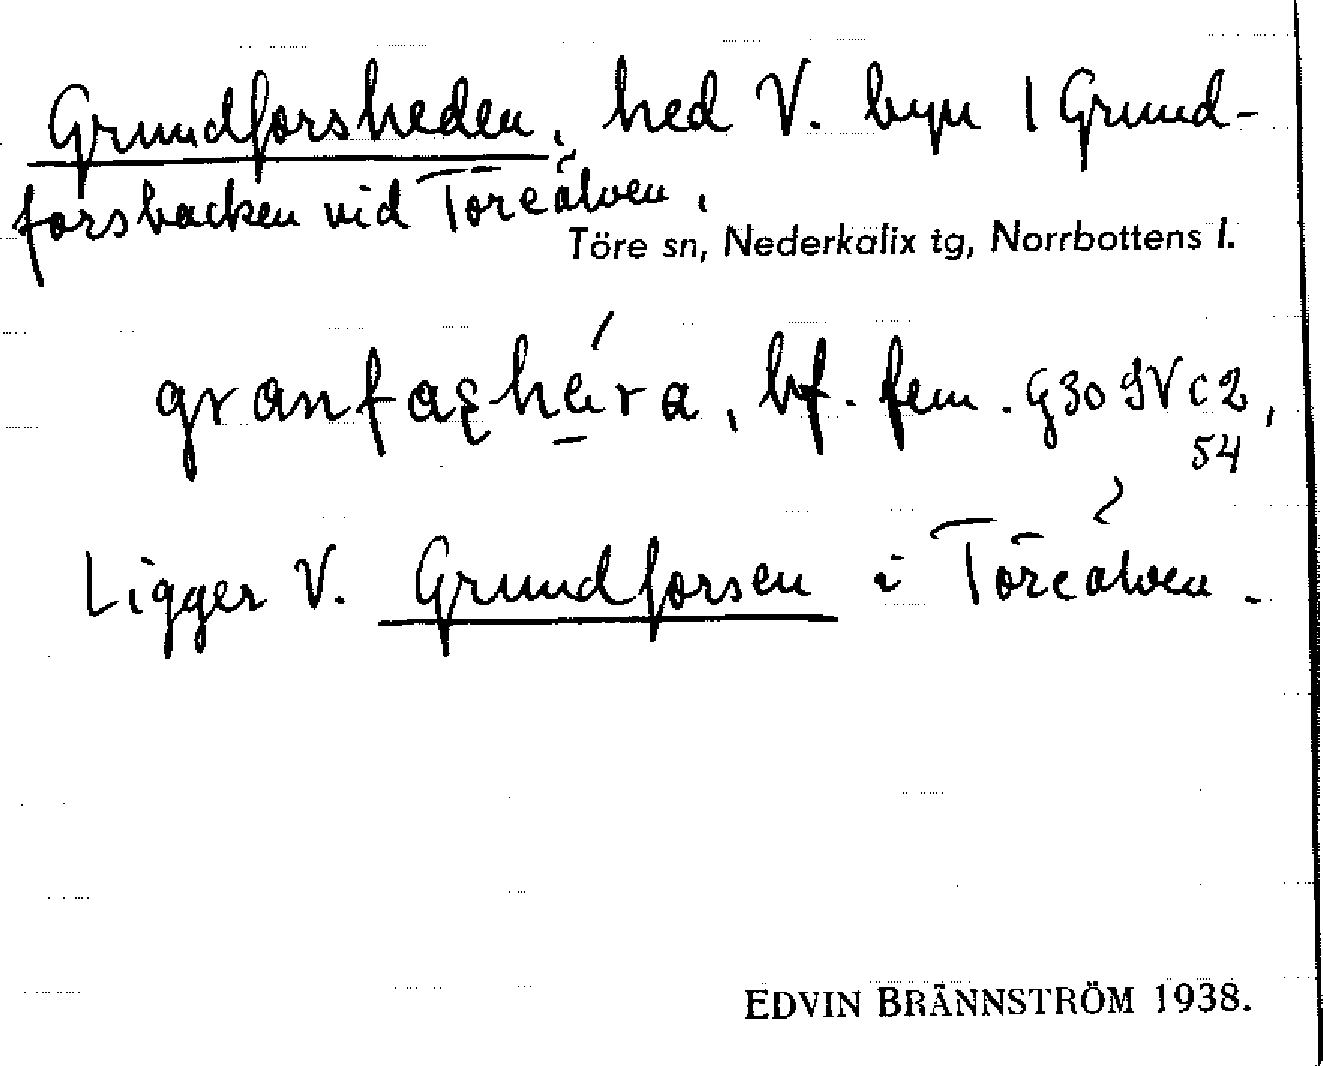 Grundforsheden, hed V. byn 1 Grund-
forsbacken vid Töreälven.
Töre sn, Nederkalix tg, Norrbottens l.
bf. fem. G30 9V c2,
54
Ligger V. Grundforsen i Töreälven.
EDVIN BRÄNNSTRÖM 1938.